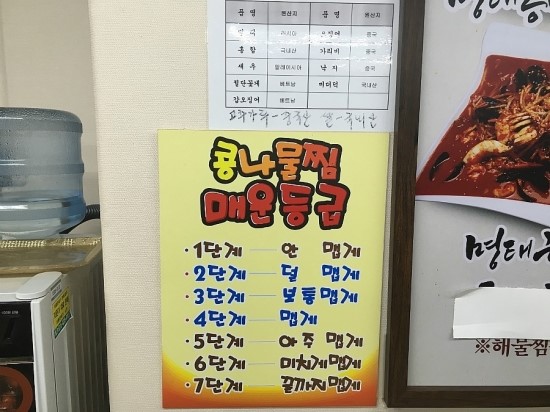 품 명 원산지 품 명 원산지
명 태 러시아 오징어 중국
홍 합 국내산 가리비 중국
새 우 말레이시아 낙 지 중국
절단꽃게 베트남 미더덕 국내산
갑오징어 베트남
고추가루-중국산 쌀-국내산
콩나물찜
매운등급
·1단계 — 안 맵게
·2단계 — 덜 맵게
·3단계 — 보통맵게
·4단계 — 맵게
·5단계 — 아주 맵게
·6단계 — 미치게맵게
·7단계 — 끝까지맵게
명태
명태
※해물찜